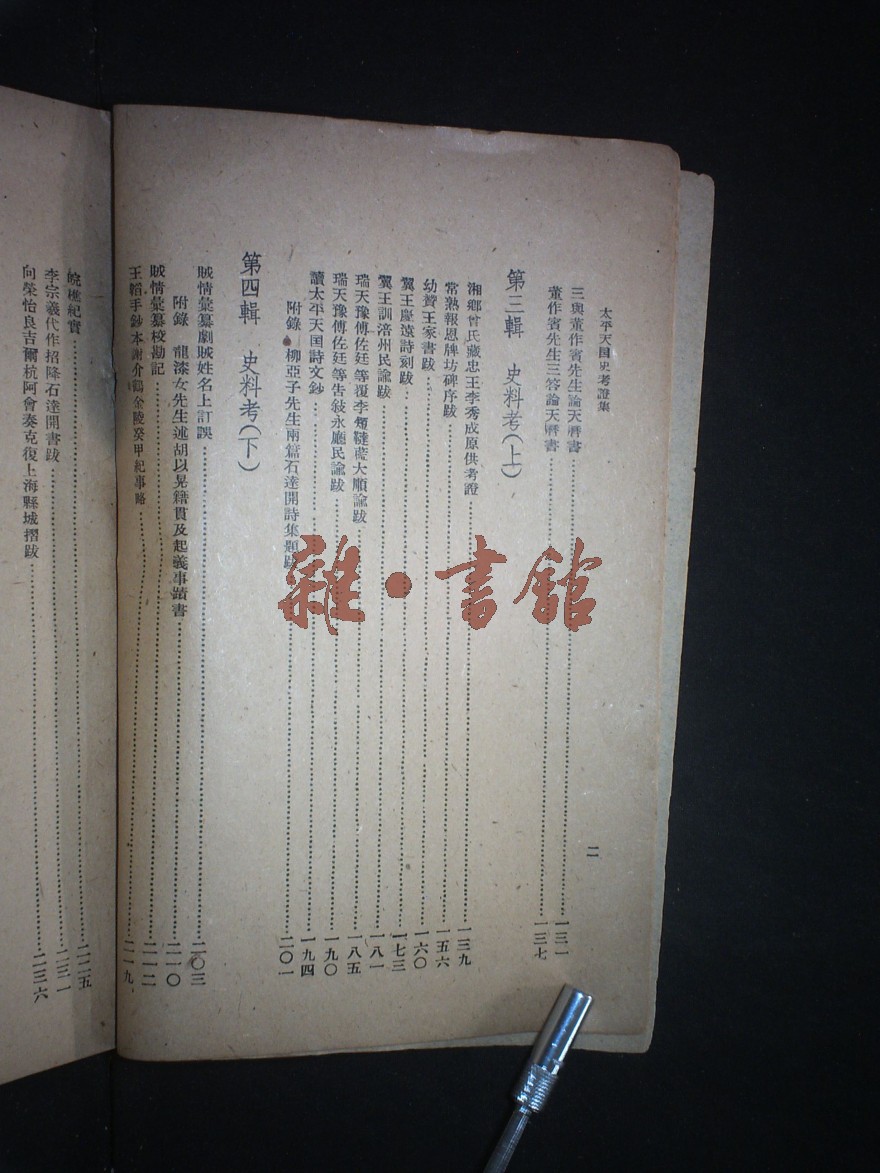 太平天国史考證集
二
三與董作賓先生論天曆書 一三一
董作賓先生三答論天曆書 一三七
第三輯 史料考(上)
湘鄉曾氏藏忠王李秀成原供考證 一三九
常熟報恩牌坊碑序跋 一五六
幼贊王家書跋 一六〇
翼王慶遠詩刻跋 一七三
翼王訓涪州民諭跋 一八一
瑞天豫傅佐廷等覆李短韃藍大順諭跋 一八五
瑞天豫傅佐廷等告敍永廳民諭跋 一九〇
讀太平天国詩文鈔 一九四
附錄 柳亞子先生兩篇石達開詩集題跋 二〇一
第四輯 史料考(下)
賊情彙纂劇賊姓名上訂誤 二〇三
附錄 龍漆女先生述胡以晃籍貫及起義事蹟書 二一〇
賊情彙纂校勘記 二一二
王韜手鈔本謝介鶴金陵癸甲紀事略 二一九
皖樵紀實 二二五
李宗羲代作招降石達開書跋 二三一
向榮怡良吉爾杭阿會奏克復上海縣城摺跋 二三六
雜·書館